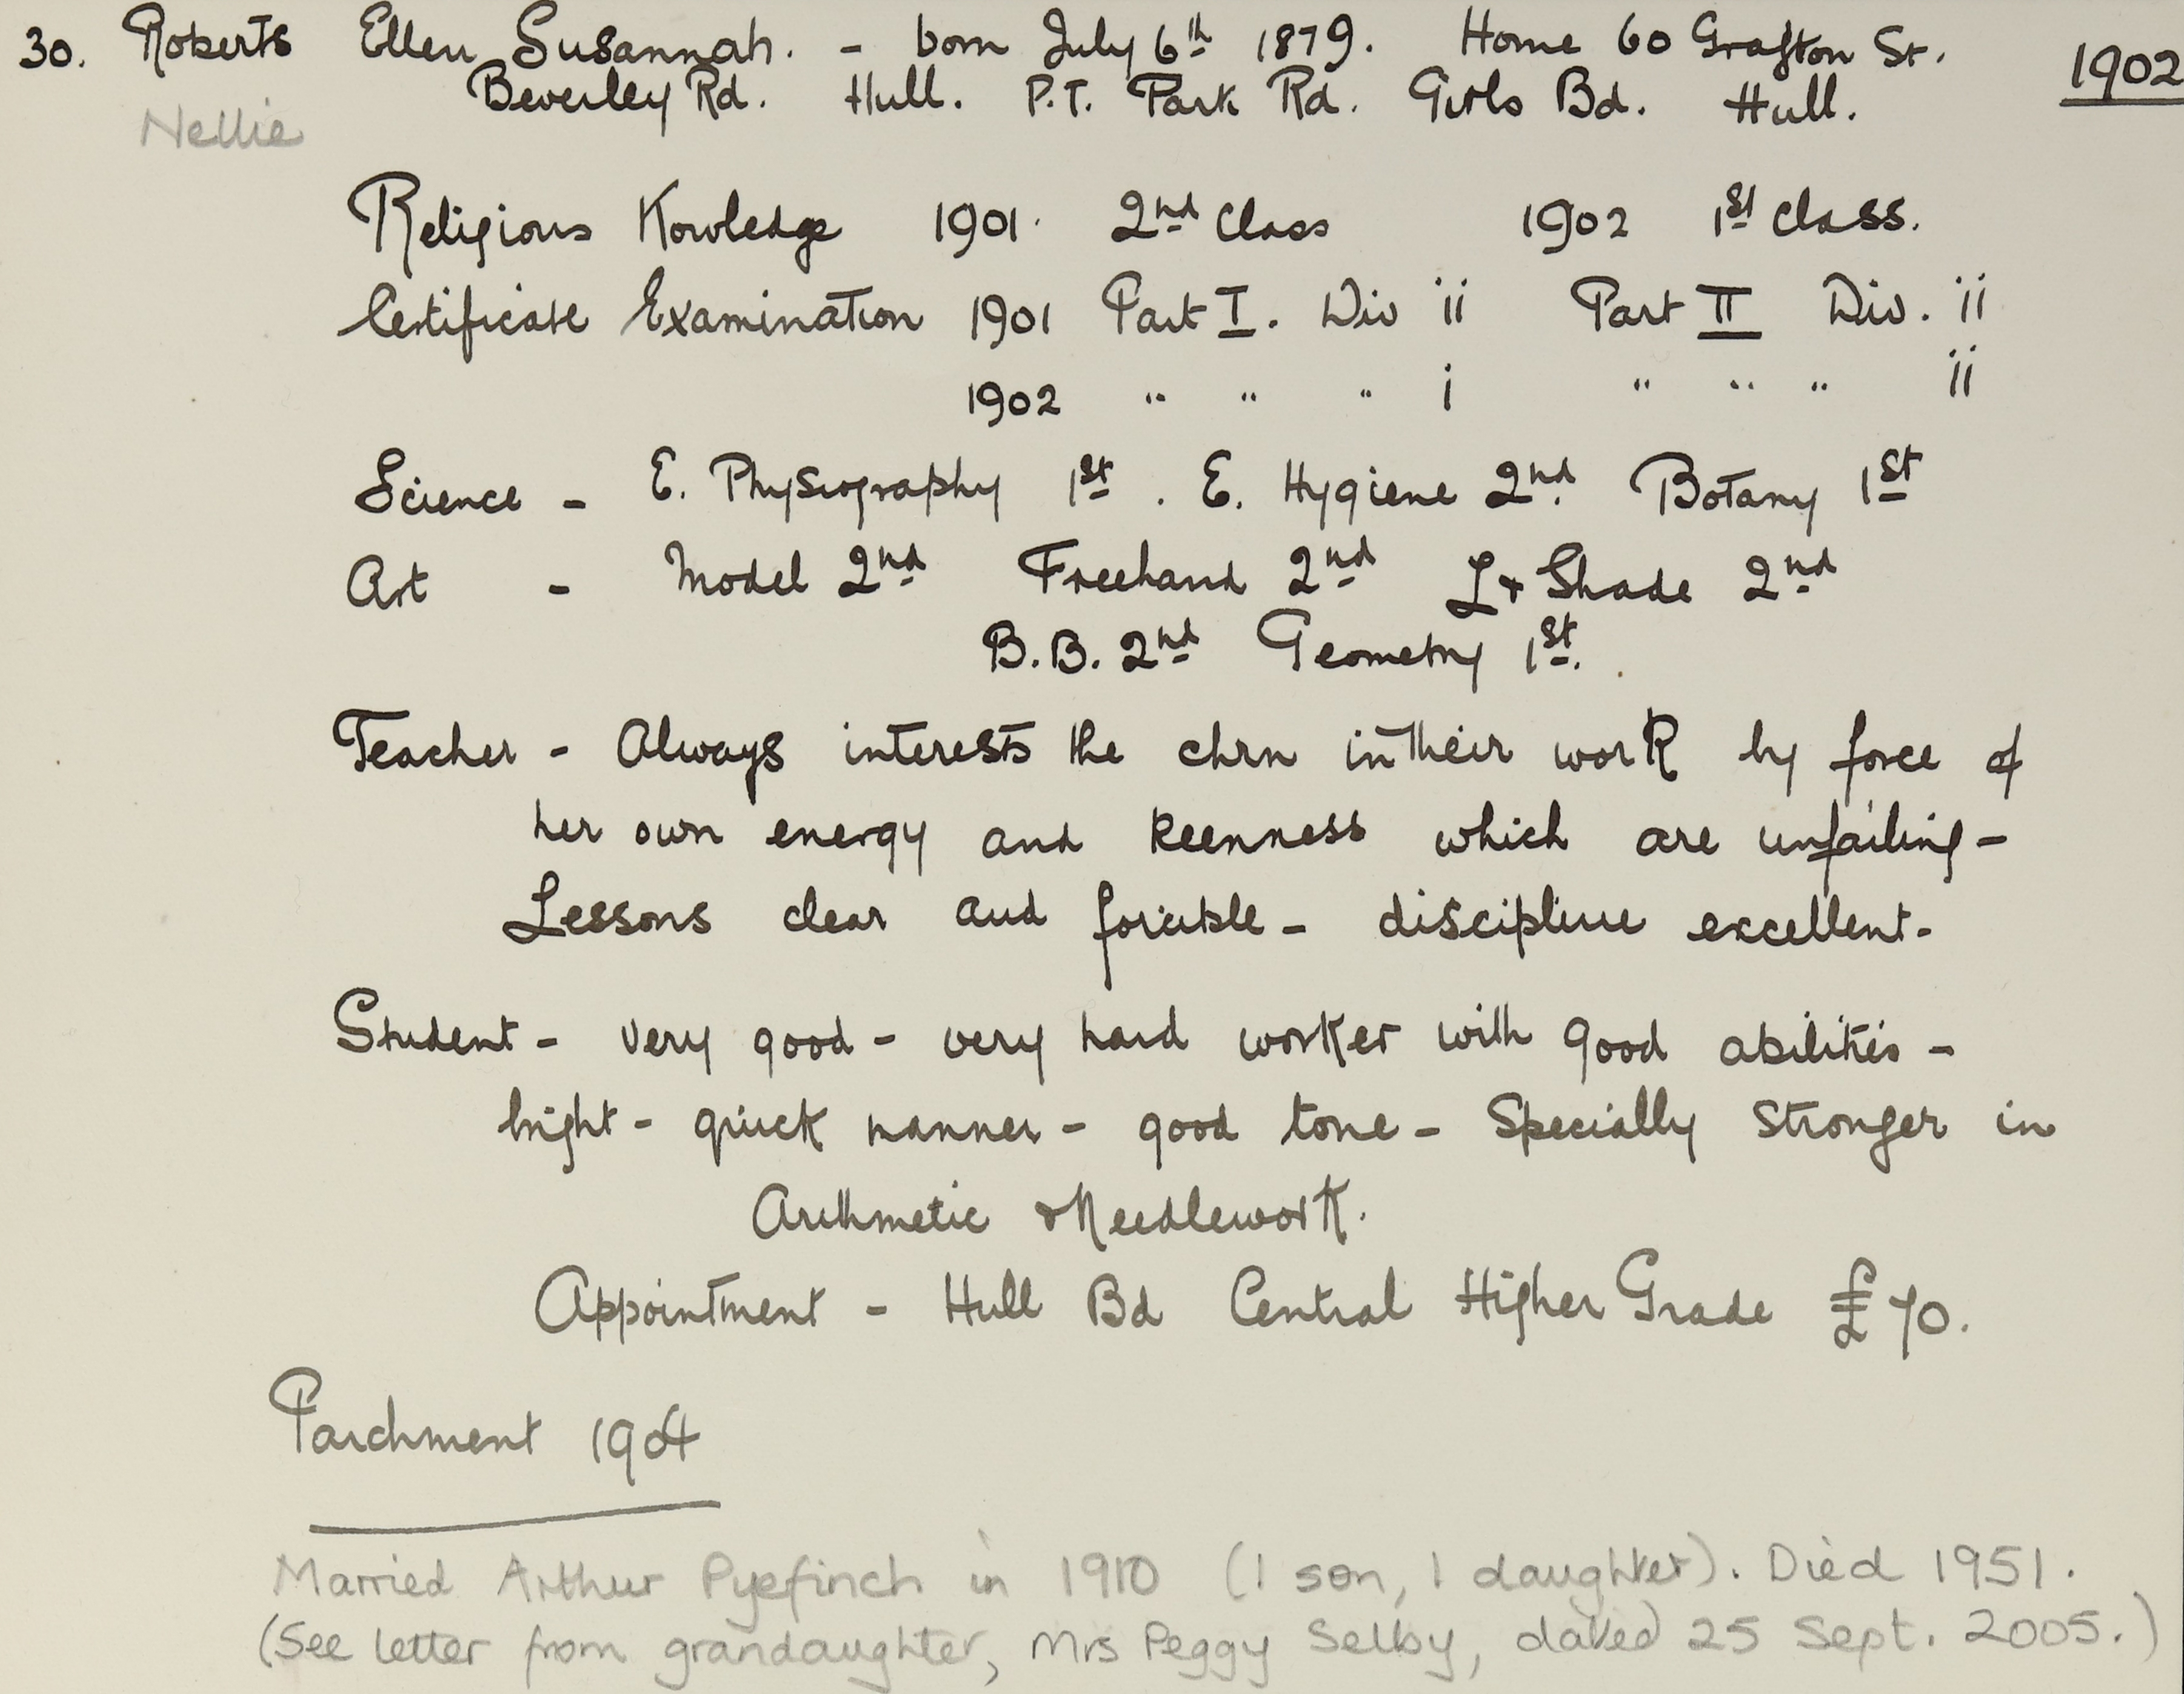 30. Roberts Ellen Susannah. - born July 6th 1879. Home 60 Grafton St. 1902
Beverley Rd. Hull. P.T. Park Rd. Girls Bd. Hull.
Nellie
Religious Kowledge 1901. 2nd Class 1902 1st class.
Certificate Examination 1901 Part I. Div ii Part II Div. ii
1902 " " " i " " " ii
Science - E. Physiography 1st. E. Hygiene 2nd. Botany 1st
Art - Model 2nd Freehand 2nd L + Shade 2nd
B.B. 2nd Geometry 1st.
Teacher - Always interests the chrn in their work by force of
her own energy and keenness which are unfailing -
Lessons clear and forcible - discipline excellent -
Student - very good - very hard worker with good abilities -
bright - quick manner - good tone - Specially stronger in
Arithmetic + Needlework.
Appointment - Hull Bd Central Higher Grade £70.
Parchment 1904
Married Arthur Pyefinch in 1910 (1 son, 1 daughter). Died 1951.
(See letter from grandaughter, Mrs Peggy Selby, dated 25 Sept. 2005.)